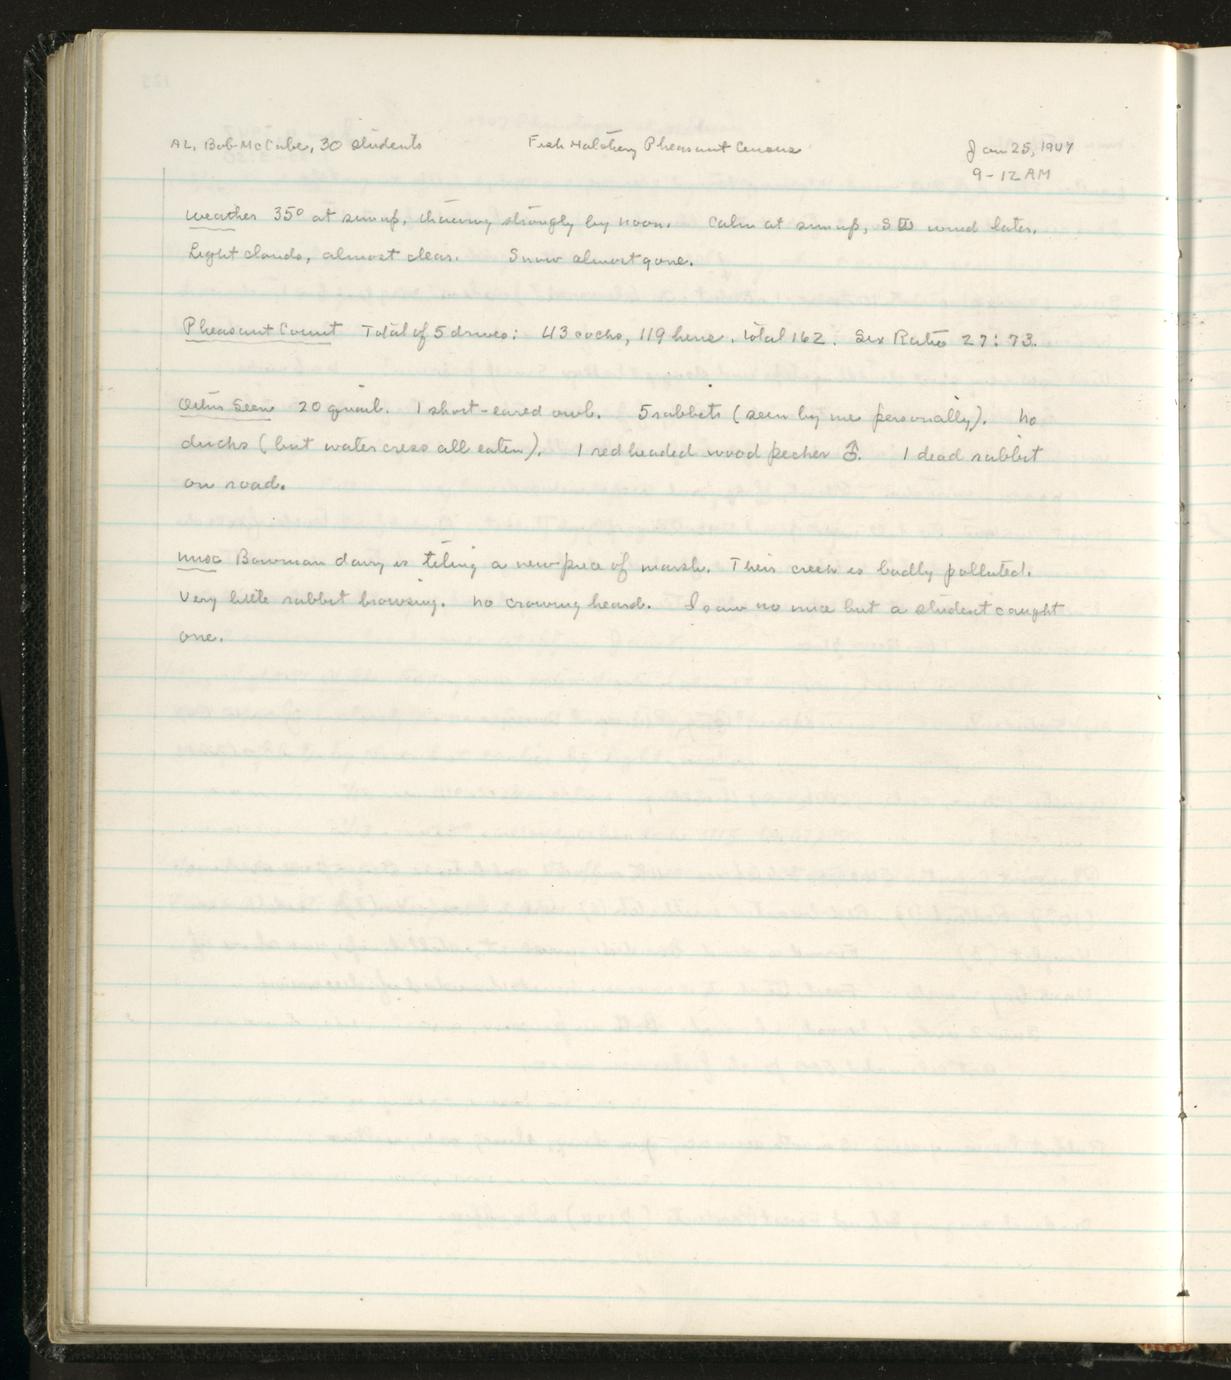 AL, Bob McCabe, 30 students Fish Hatchery Pheasant Census Jan 25, 1947
9-12 AM
Weather 35° at sunup, thawing strongly by noon. Calm at sunup, SW wind later.
Light clouds, almost clear. Snow almost gone.
Pheasant Count Total of 5 drives: 43 cocks, 119 hens, total 162. Sex Ratio 27:73.
Other Seen 20 quail. 1 short-eared owl. 5 rabbits (seen by me personally). No
ducks (but watercress all eaten). 1 redheaded woodpecker ♂. 1 dead rabbit
on road.
Misc Bowman dairy is tiling a new piece of marsh. Their creek is badly polluted.
Very little rabbit browsing. No crowing heard. I saw no mice but a student caught
one.